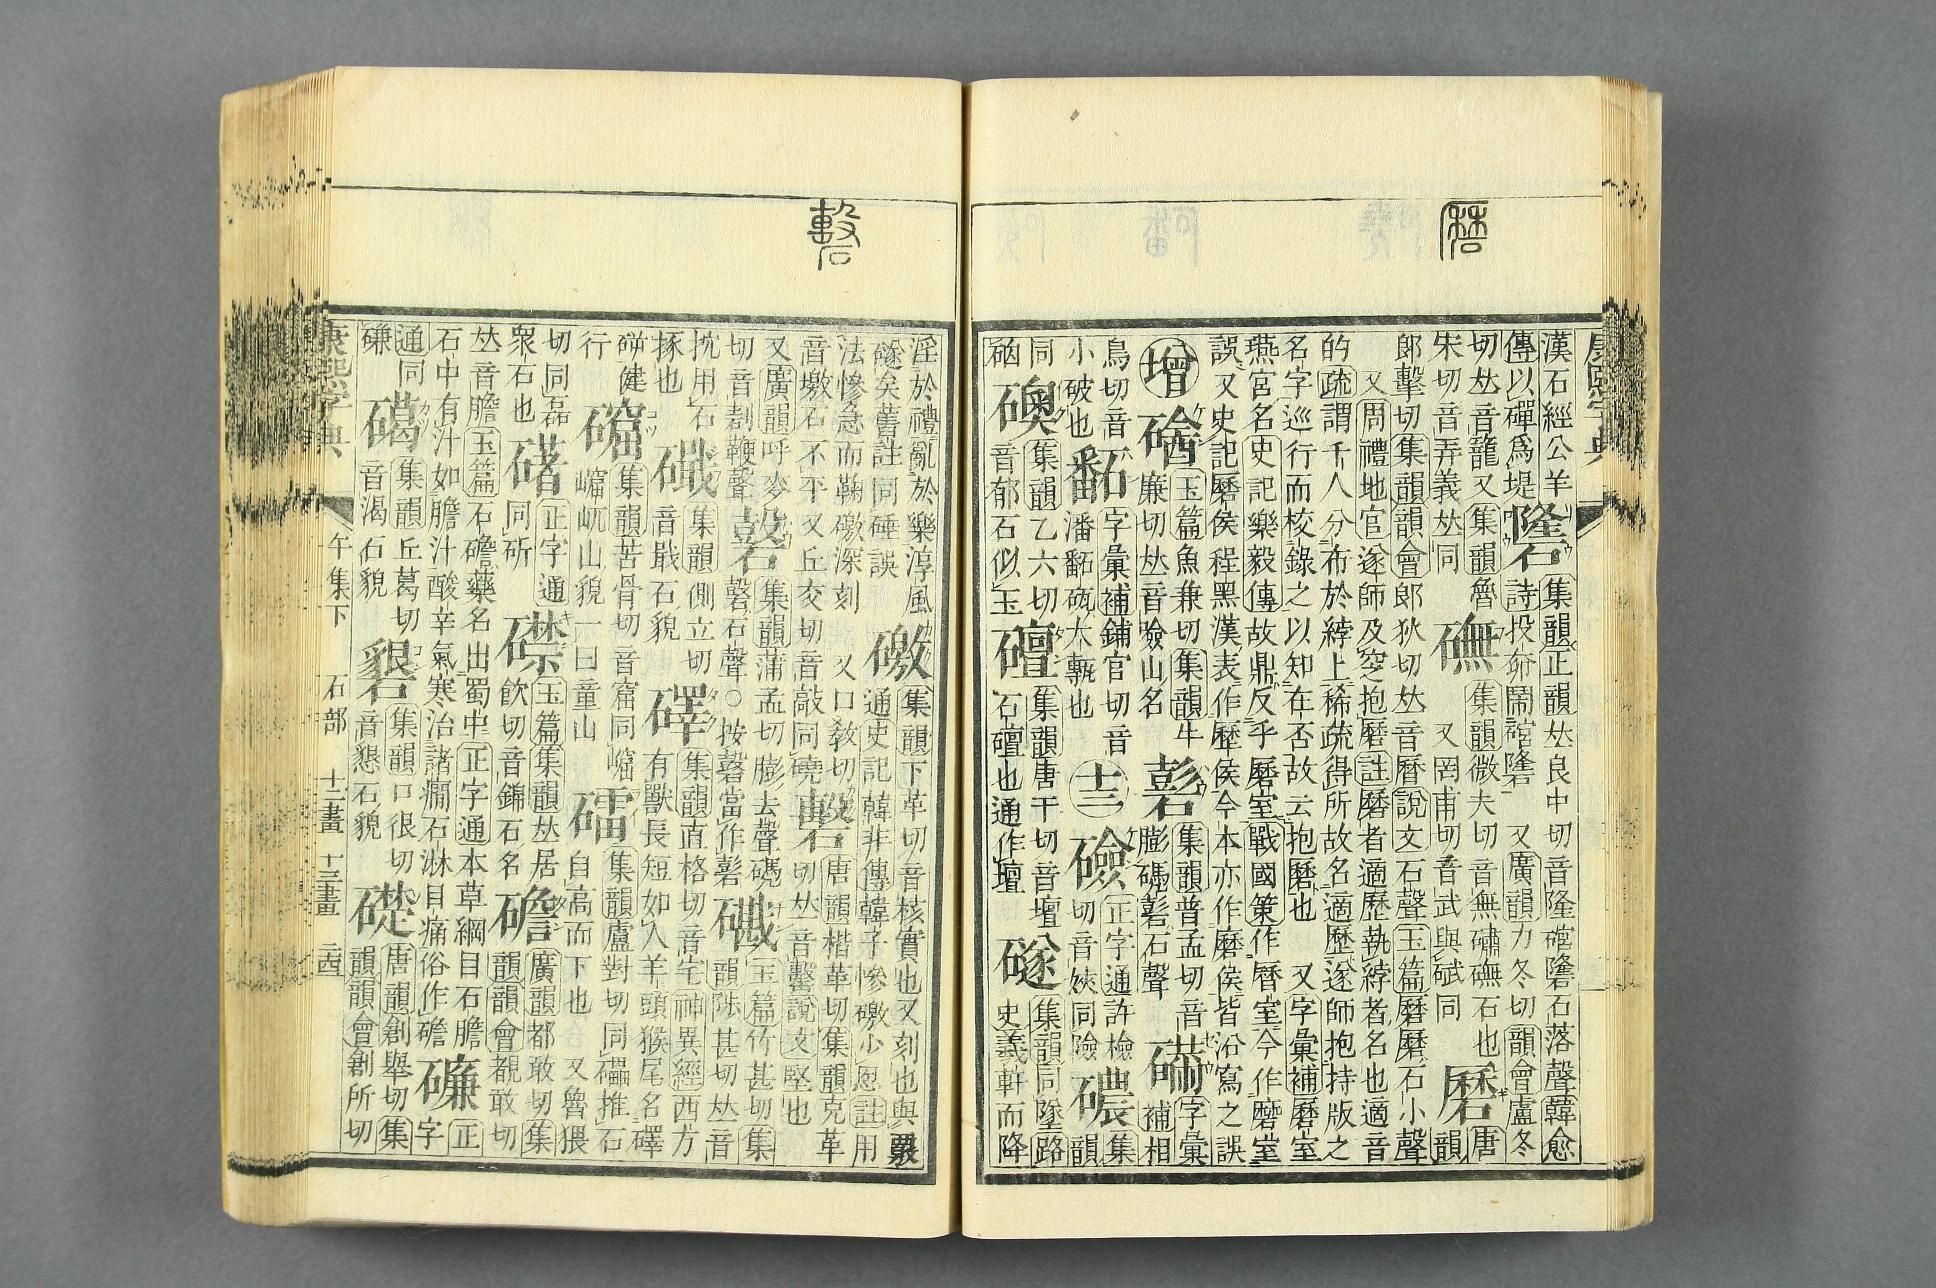 康熙字典
漢石經公羊
傳以磾爲堤
𥗆
集韻正韻𠀤良中切音隆䃔𥗆石落聲韓愈
詩投奅鬧䃔𥗆
又廣韻力冬切韻會盧冬
切𠀤音籠又集韻魯
宋切音弄義𠀤同
集韻微夫切音無磠石也
又罔甫切音武與碔同
磿
唐
韻
郎擊切集韻韻會郎狄切𠀤音曆說文石聲玉篇磿磿石小聲
又周禮地官遂師及窆抱磿註磿者適歷執綍者名也適音
的疏謂千人分布於綍上稀疏得所故名適歷遂師抱持版之
名字巡行而校錄之以知在否故云抱磿也
又字彙補磿室
燕宮名史記樂毅傳故鼎反乎磿室戰國策作曆室今作磨室
誤又史記磿侯程黑漢表作歷侯今本亦作磨侯皆沿寫之誤
增
玉篇魚兼切集韻牛
廉切𠀤音嶮山名
集韻普孟切音
膨磞石聲
字彙
補相
鳥切音
小破也
字彙補鋪官切音
潘
大甎也
十三
礆
正字通許檢
切音㛍同險
集
韻
同
礇
集韻乙六切
音郁石似玉
礓
集韻唐干切音壇
石也通作壇
礈
集韻同墜路
史義軒而降
淫於禮亂於樂淳風
礈矣舊註同硾誤
礉
集韻下革切音核實也又刻也與覈
通史記韓非傳韓子慘礉少恩註用
法慘急而鞠礉深刻
又口敎切
音墽石不平又丘交切音敲同磽
唐韻楷革切集韻克革
切𠀤音礊說文堅也
又廣韻呼麥
切音剨鞭聲
集韻蒲孟切膨去聲磞
石聲○按
當作
玉篇竹甚切集
韻陟甚切𠀤音
抌用石
㧻也
集韻側立切
音戢石貌
礋
集韻直格切音宅神異經西方
有獸長短如人羊頭猴尾名礋
硥健
行
集韻苦骨切音窟同崫
崫屼山貌一曰童山
礌
集韻盧對切同礧推石
自高而下也
又魯猥
切同磊
衆石也
正字通
同斫
𥖜
玉篇集韻𠀤居
飮切音錦石名
礛
廣韻都敢切集
韻韻會覩敢切
𠀤音膽玉篇石礛藥名出蜀中正字通本草綱目石膽
石中有汁如膽汁酸辛氣寒治諸癇石淋目痛俗作礛
正
字
通同
磏
礍
集韻丘葛切
音渴石貌
集韻口很切
音懇石貌
礎
唐韻創舉切集
韻韻會創所切
康熙字典
午集下
石部
十二畫
十三畫